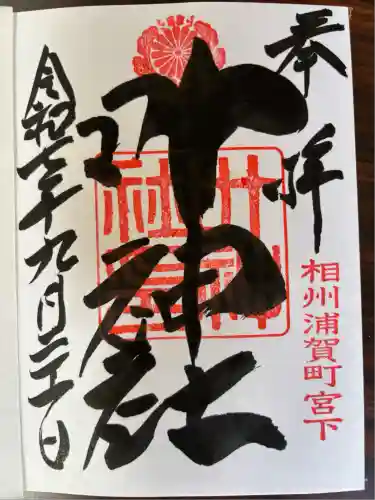 奉拝
相州浦賀町宮下
叶神社
令和七年九月二十一日